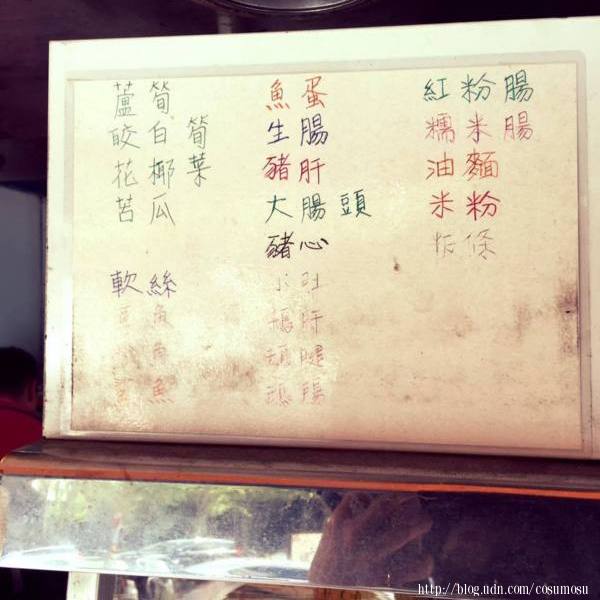 蘆筍
皎白筍
花椰菜
苦瓜
軟絲
魚
魚
魚蛋
生腸
豬肝
大腸頭
豬心
小肚
肝
腱
腸
紅粉腸
糯米腸
油麵
米粉
粄條
http://blog.udn.com/cosumosu